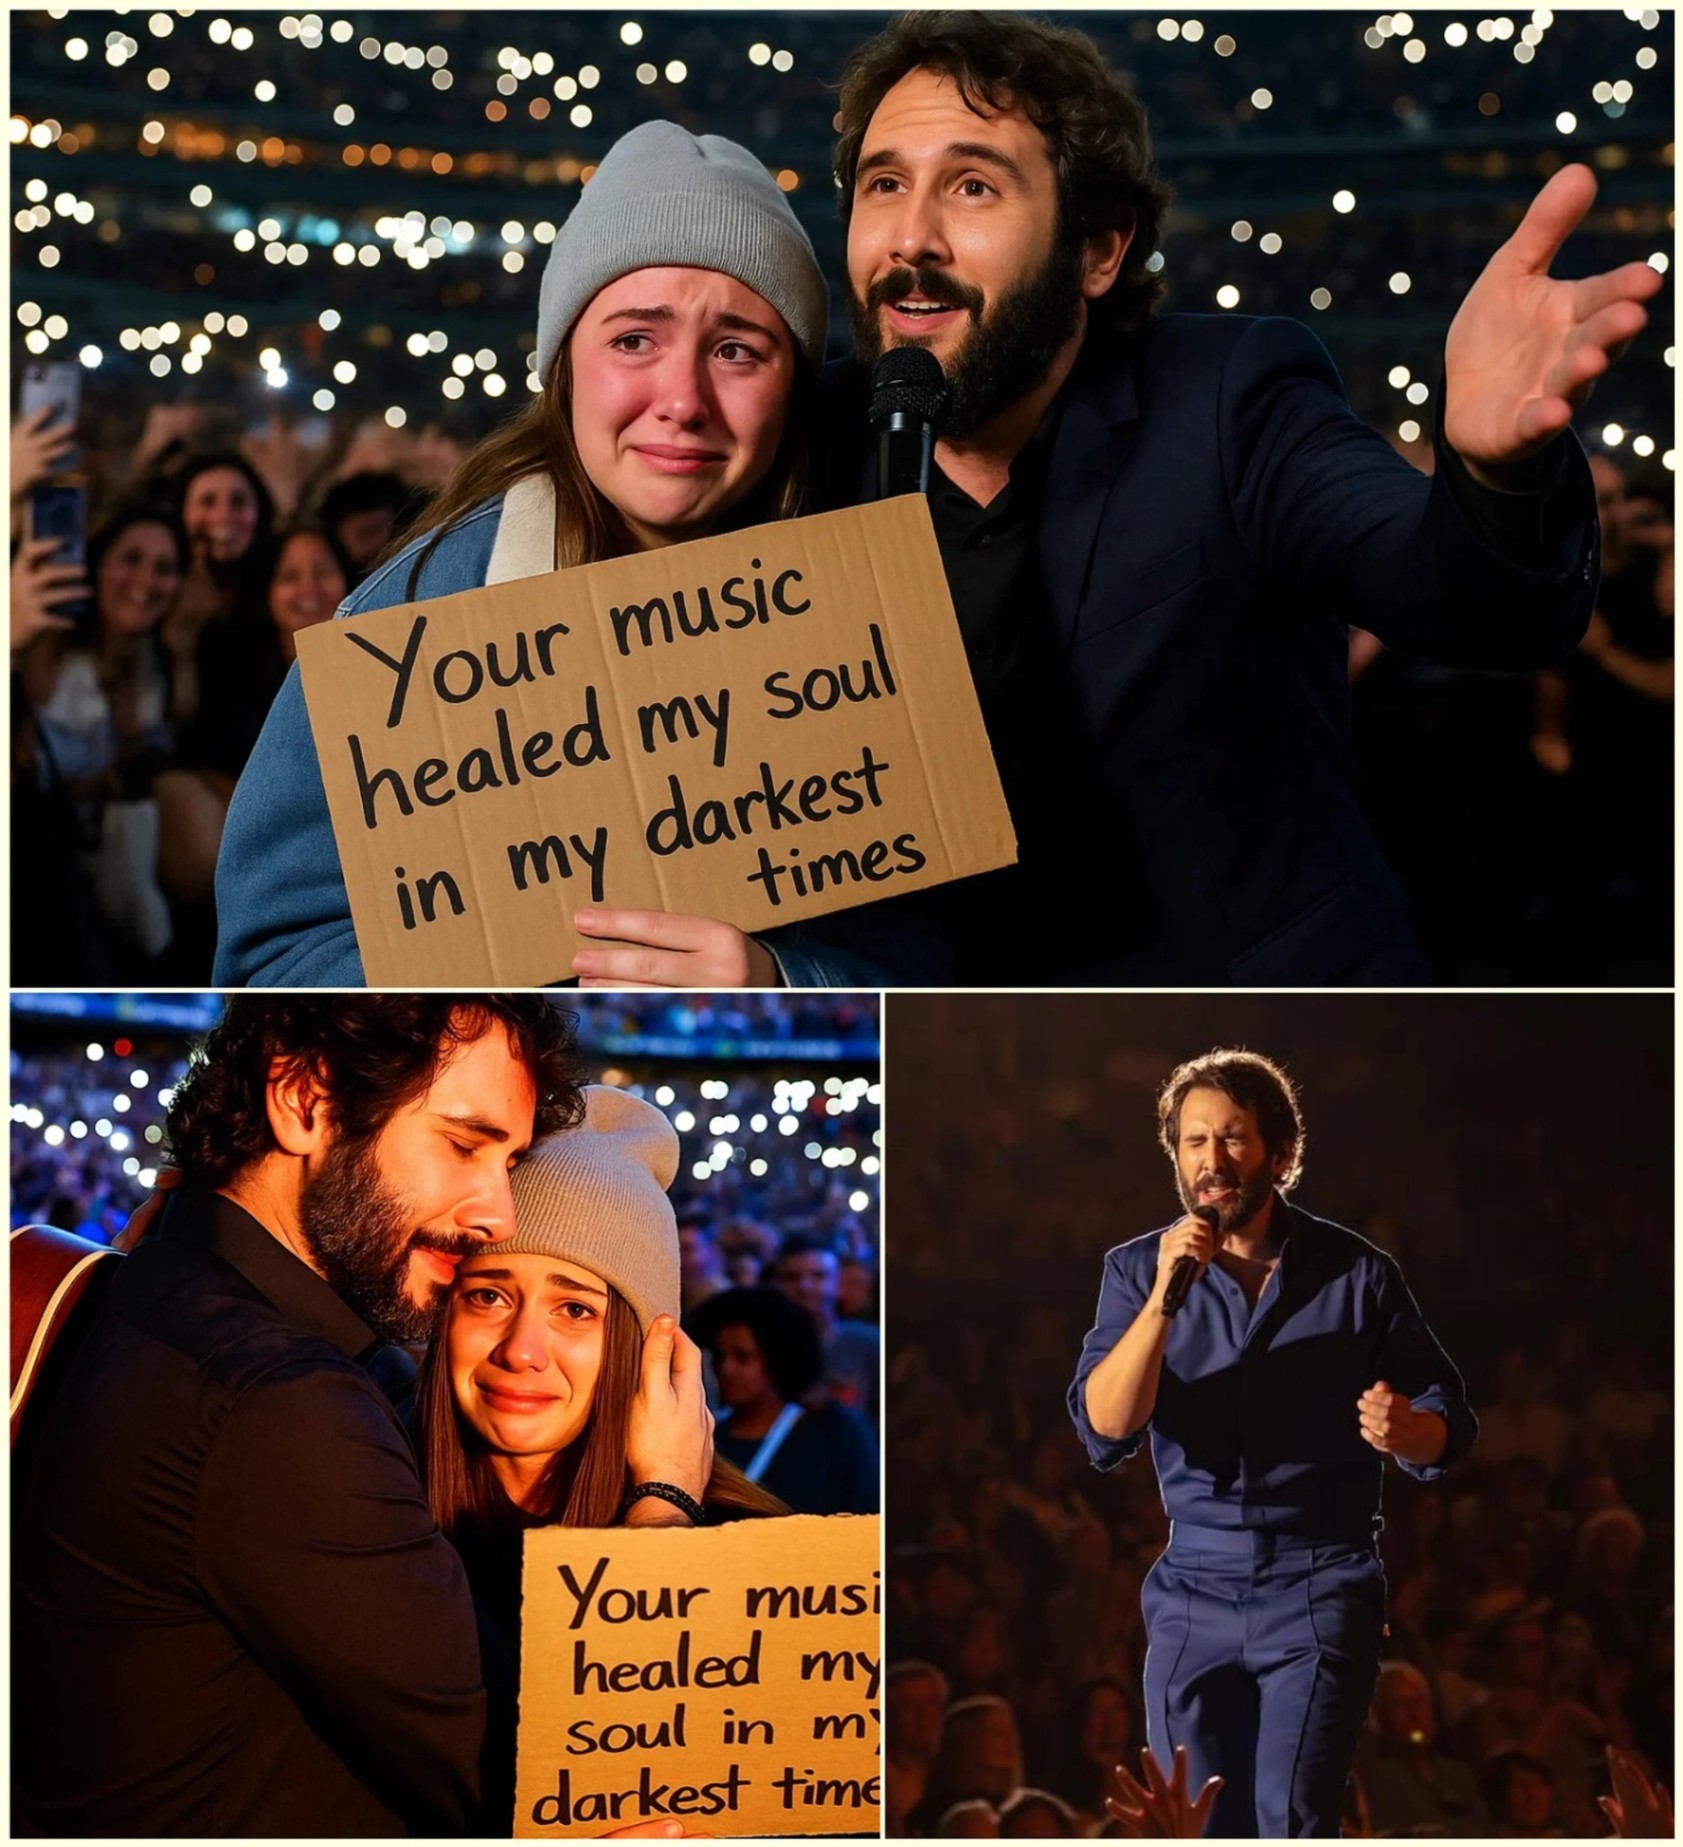 Your music
healed my soul
in my darkest
times
Your musi
healed my
soul in my
darkest time